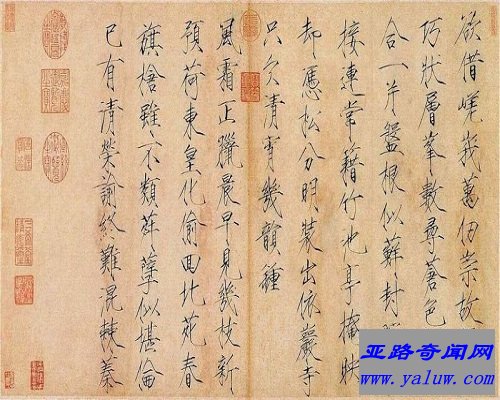 欲借嵯峩萬仞崇故
巧狀層峯數尋蒼色
合一片盤根似蘚封
接連常籍竹池亭掩映
却憑松分明裝出依巖寺
只欠清宵幾韻鍾
風霜正臘晨早見幾枝新
預荷東皇化偷回北苑春
旗槍雖不類荈孽似堪倫
已有清榮諭終難混棘蓁
亚路奇闻网
www.yaluw.com